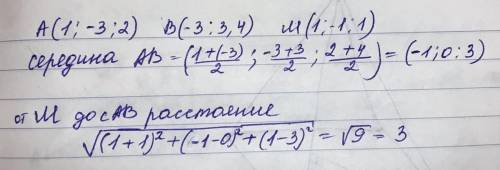 A(1;-3;2) B(-3;3,4) M(1;-1;1)
середина AB = (1+(-3)/2; -3+3/2; 2+4/2) = (-1;0;3)
от M до сAB расстояние
√((1+1)²+(-1-0)²+(1-3)²) = √9 = 3